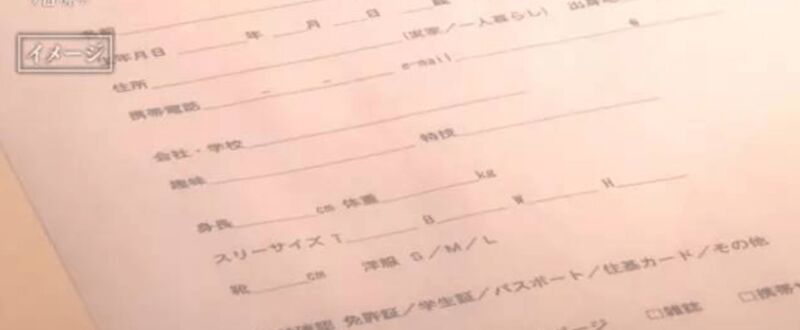 イメージ
年月日 年 月 日 歳
住所 (実家/一人暮らし)
携帯電話 - - e-mail @
会社・学校
趣味 特技
身長 cm 体重 kg
スリーサイズ T B W H
靴 cm 洋服 S/M/L
確認 免許証/学生証/パスポート/住基カード/その他
ージ □雑誌 □携帯